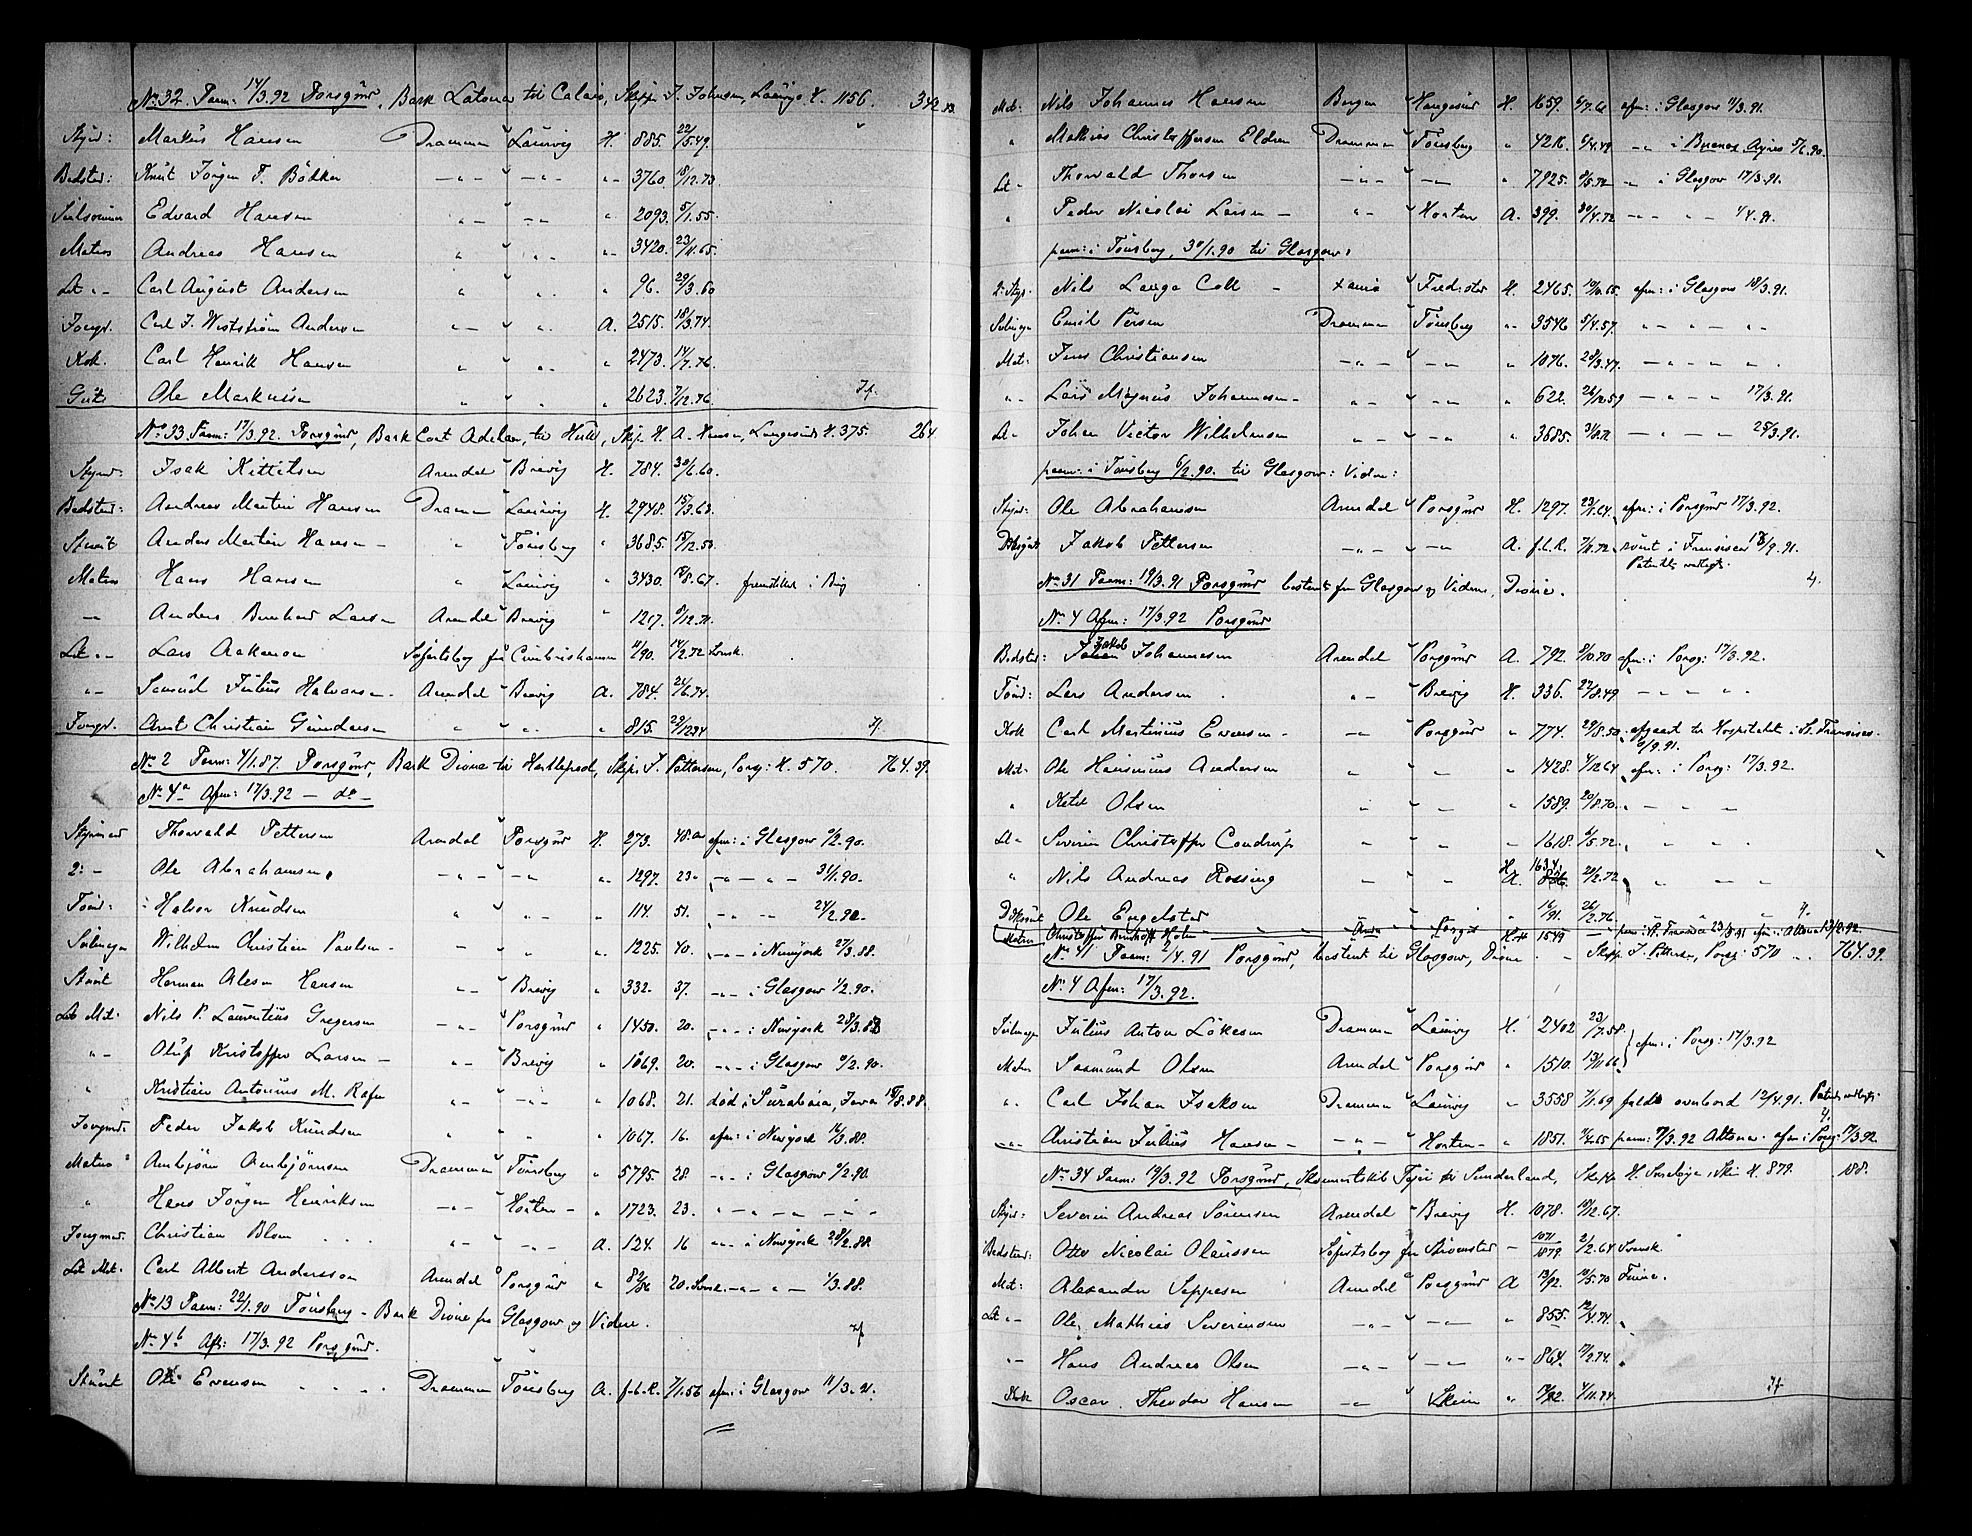 No 32 Paam: 14/3.92 Porsgrund, Bark Latona til Calais, Skipp. J. Johnsen, Laurvigs H. 1156. 342.
Styrm: Markus Hansen Drammen Laurvig H. 885. 22/5.49.
Bedstm: Knut Jörgen T. Bödker -"- -"- "- 3760. 18/12.73.
Seilsömmer Edvard Hansen "- -"- " 2093. 5/1.55.
Matros Andreas Hansen " "- 3420. 23/11.65.
Let "- Carl August Andersen " " 96. 29/3.60
Jungm. Carl J. Andersen "- " A. 2515. 18/3.74.
Kok. Carl Henrik Hansen " " 2473. 14/7.76.
Gut Ole Markusen " " 2623. 7/12.76.
No 33 Paam: 17/3.92. Porsgrund, Bark Cort Adelaer, til Hull, Skip. H. A. Hansen, Langesunds H. 375. 264.
Styrm: Isak Kittilsen Arendal Brevig H. 784. 30/6.60.
Bedstm: Andreas Martin Hansen Drammen Laurvig H. 2948. 15/3.63.
Stuert Anders Martin Hansen - " Tönsberg " 3685. 15/12.50.
Matros Hans Hansen " Laurvig " 3430. 12/8.67. fremstillet i Brvg
-"- Anders Bernhard Larsen Arendal Brevig " 1217. 9/12.71.
Let "- Lars Aakeson Söfartsbog fra Cimbrishamn 11/90. 14/2.72 Svensk.
"- Samuel Julius Halvorsen. Arendal Brevig A. 784. 24/6.74.
Jungm. Anut Christian Gundersen " " " 815. 29/12.74
No 2 Paam: 4/1.87. Porsgrund, Bark Dione til Hartlepool, Skip. J. Pettersen, Porsg: H. 570. 764.39.
No 4a Afm: 17/3.92 - do -
Styrmand Thorvald Pettersen Arendal Porsgrund H. 273. 48. afm: i Glasgow 6/2.90.
2: - Ole Abrahamsen -"- -"- " 1297. 23" -"- " - 31/1.90.
Tömm: Halvor Knudsen " " - " 114. 51. -"- "- 24/2.90.
Seilmager Wilhelm Christian Paulsen " " " 1225. 40. -"- i Newyork 27/3.88.
Stuert Herman Olesen Hansen "- Brevig " 332. 37. -"- i Glasgow 1/2.90.
Let Mat: Nils P. Laurentius Gregersen "- Porsgrund " 1450. 20. -"- i Newyork 28/3.88
"- Oluf Kristoffer Larsen - "- Brevig " 1069. 20. -"- i Glasgow 6/2.90.
" Kristian Antonius M. Rafn "- -"- " 1068. 21. död i Surabaia, Java 18/8.88.
Jungmd: Peder Jakob Knudsen " " " 1067. 16. afm: i Newyork 16/3.88.
Matros Arnbjörn Arnbjörnsen Drammen Tönsberg " 5795. 28. -"- i Glasgow 6/2.90.
" Hans Jörgen Henriksen -"- Horten - " 1723. 23. " - " - " - "
Jungmd. Christian Blom "- -"- A. 124. 16 "- i Newyork 28/2.88.
Let Mat. Carl Albert Andersson Arendal Porsgrund " 82/86 20. Svensk -"- " - 1/3.88.
No 13 Paam: 22/1.90 Tönsberg - Bark Dione fra Glasgow og Videre.
No 4b Afm: 17/3.92 Porsgrund.
Stuert Ole Evensen Drammen Tönsberg A. f.b.R. 7/1.56 afm: i Glasgow 11/3.91.
Mat: Nils Johannes Hansen Bergen Haugesund H. 1659. 6/7.61 afm: i Glasgow 11/3.91.
" Mathias Christoffersen Eldren Drammen Tönsberg " 4216. 6/4.49 -"- i Buenos Ayres 5/6.90.
Let - Thorvald Thorsen -"- -"- " 7925. 9/5.72 -"- i Glasgow 17/3.91.
" Peder Nicolai Larsen - "- Horten A. 399. 30/4.72 -"- " - 4/4.91.
paam: i Tönsberg, 30/1.90 til Glasgow:
2: Styr. Nils Lauga Coll - Xania Fredr.stad H. 2465. 19/10.65. afm: i Glasgow 18/3.91.
Seilmager Emil Persen Drammen Tönsberg " 3546 5/4.57. " - " - "
Mat: Jens Christiansen -"- -"- " 1076. 28/3.47. - " - " - "
" - Lars Magnus Johannesen - " " - " 622. 26/10.59 - " - " 17/3.91.
Let - Johan Victor Wilhelmsen " - " " 3685. 31/8.72 - " - " - 25/3.91.
paam: i Tönsberg 6/2.90. til Glasgow: Videre:
Styrm: Ole Abrahamsen Arendal Porsgrund H. 1297. 23/1.64. afm: i Porsgrund 17/3.92.
Dæksgut Jakob Pettersen -"- -"- A. f.b.R. 7/11.72. römt i Francisco 13/9.91.
Patentbl. vedlagt.
No 31 Paam: 19/3.91 Porsgrund bestemt fra Glasgow og Videre, Dione.
No 4 Afm: 17/3.92 Porsgrund
Bedstm: Jakob Johannesen Arendal Porsgrund A. 792. 9/10.70 afm: i Porsg: 17/3.92.
Tömm: Lars Andersen "- Brevig H. 336. 27/8.49 - " - " "
Kok Carl Martinius Evensen - -"- Porsgrund " 774. 29/8.50. afgaaet til Hospitalet i St. Francisco.
6/9.91.
Mat: Ole Hansinius Andersen " - " - " 1428. 4/12.64 afm: i Porsg: 17/3.92.
" Ketil Olsen " " " 1589 20/8.70. " - " -
Let " Severin Christoffer Coudrup " " " 1618. 6/5.72. " "
" Nils Andreas Rossing " " H. 1634. 20/2.72 " " "
Dæksgut Ole Engelstad " " " 16/91. 26/2.76. " "
Matros Christoffer Holm - " - Aren Porsgr H. 1549 paam: i St. Francisco 23/8.91 afm: i Altona 13/2.92.
No 41 Paam: 2/4.91 Porsgrund, bestemt til Glasgow, Dione - Skipp. J. Pettersen, Porsg: 570 .. 764.39.
No 4 Afm: 17/3.92.
Seilmager Julius Anton Lökesen Drammen Laurvig H. 2402 23/7.58. } afm: i Porsg: 17/3.92
Matros Saamund Olsen Arendal Porsgrund " 1510. 13/11.66.
" Carl Johan Isaksen Drammen Laurvig " 3558 7/1.69 faldt overbord 12/4.91. Patentbl. vedlagt.
"- Christian Julius Hansen - " - Horten - " 1851. paam: 7/3.92 Altona. afm: i Porsg: 17/3.92
No 34 Paam: 19/3.92 Porsgrund, Skonnertskib Fejer til Sunderland, Skipp. H. , Skien H. 879. 188.
Styrm: Severin Andreas Sörensen Arendal Brevig H. 1078. 19/12.67.
Bedstm: Otto Nicolai Olaussen Söfartsbog fra Strömstad - 1071/1879. 2/2.64 Svensk
Mat: Alexander Seppesen Arendal Porsgrund A 13/92. 10/5.70 Finne.
Let "- Ole Mathias Severinsen -"- -"- " 855. 12/4.74.
"- Hans Andreas Olsen -"- -"- "- 864. 17/2.74.
Kok Oscar Theodor Hansen -"- Skien " 7/92. 4/11.74.